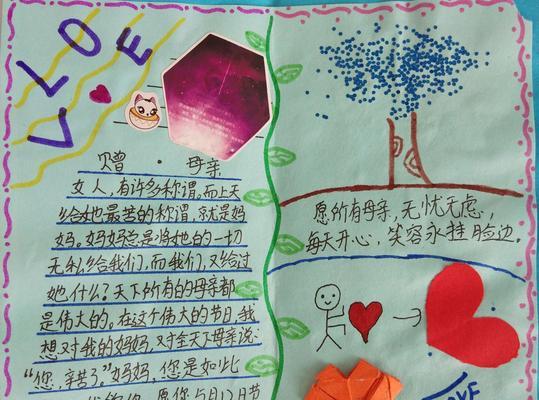 LOVE
赠·母亲
女人,有许多称谓,而上天
给她最苦的称谓,就是妈
妈。妈妈总是将她的一切
无私给我们,而我们,又给过
她什么?天下所有的母亲都
是伟大的。在这个伟大的节日,我
想对我的妈妈,对全天下母亲说:
“您,辛苦了。”妈妈,您是如此
您5月12日节
愿所有母亲,无忧无虑,
每天开心,笑容永挂脸边.